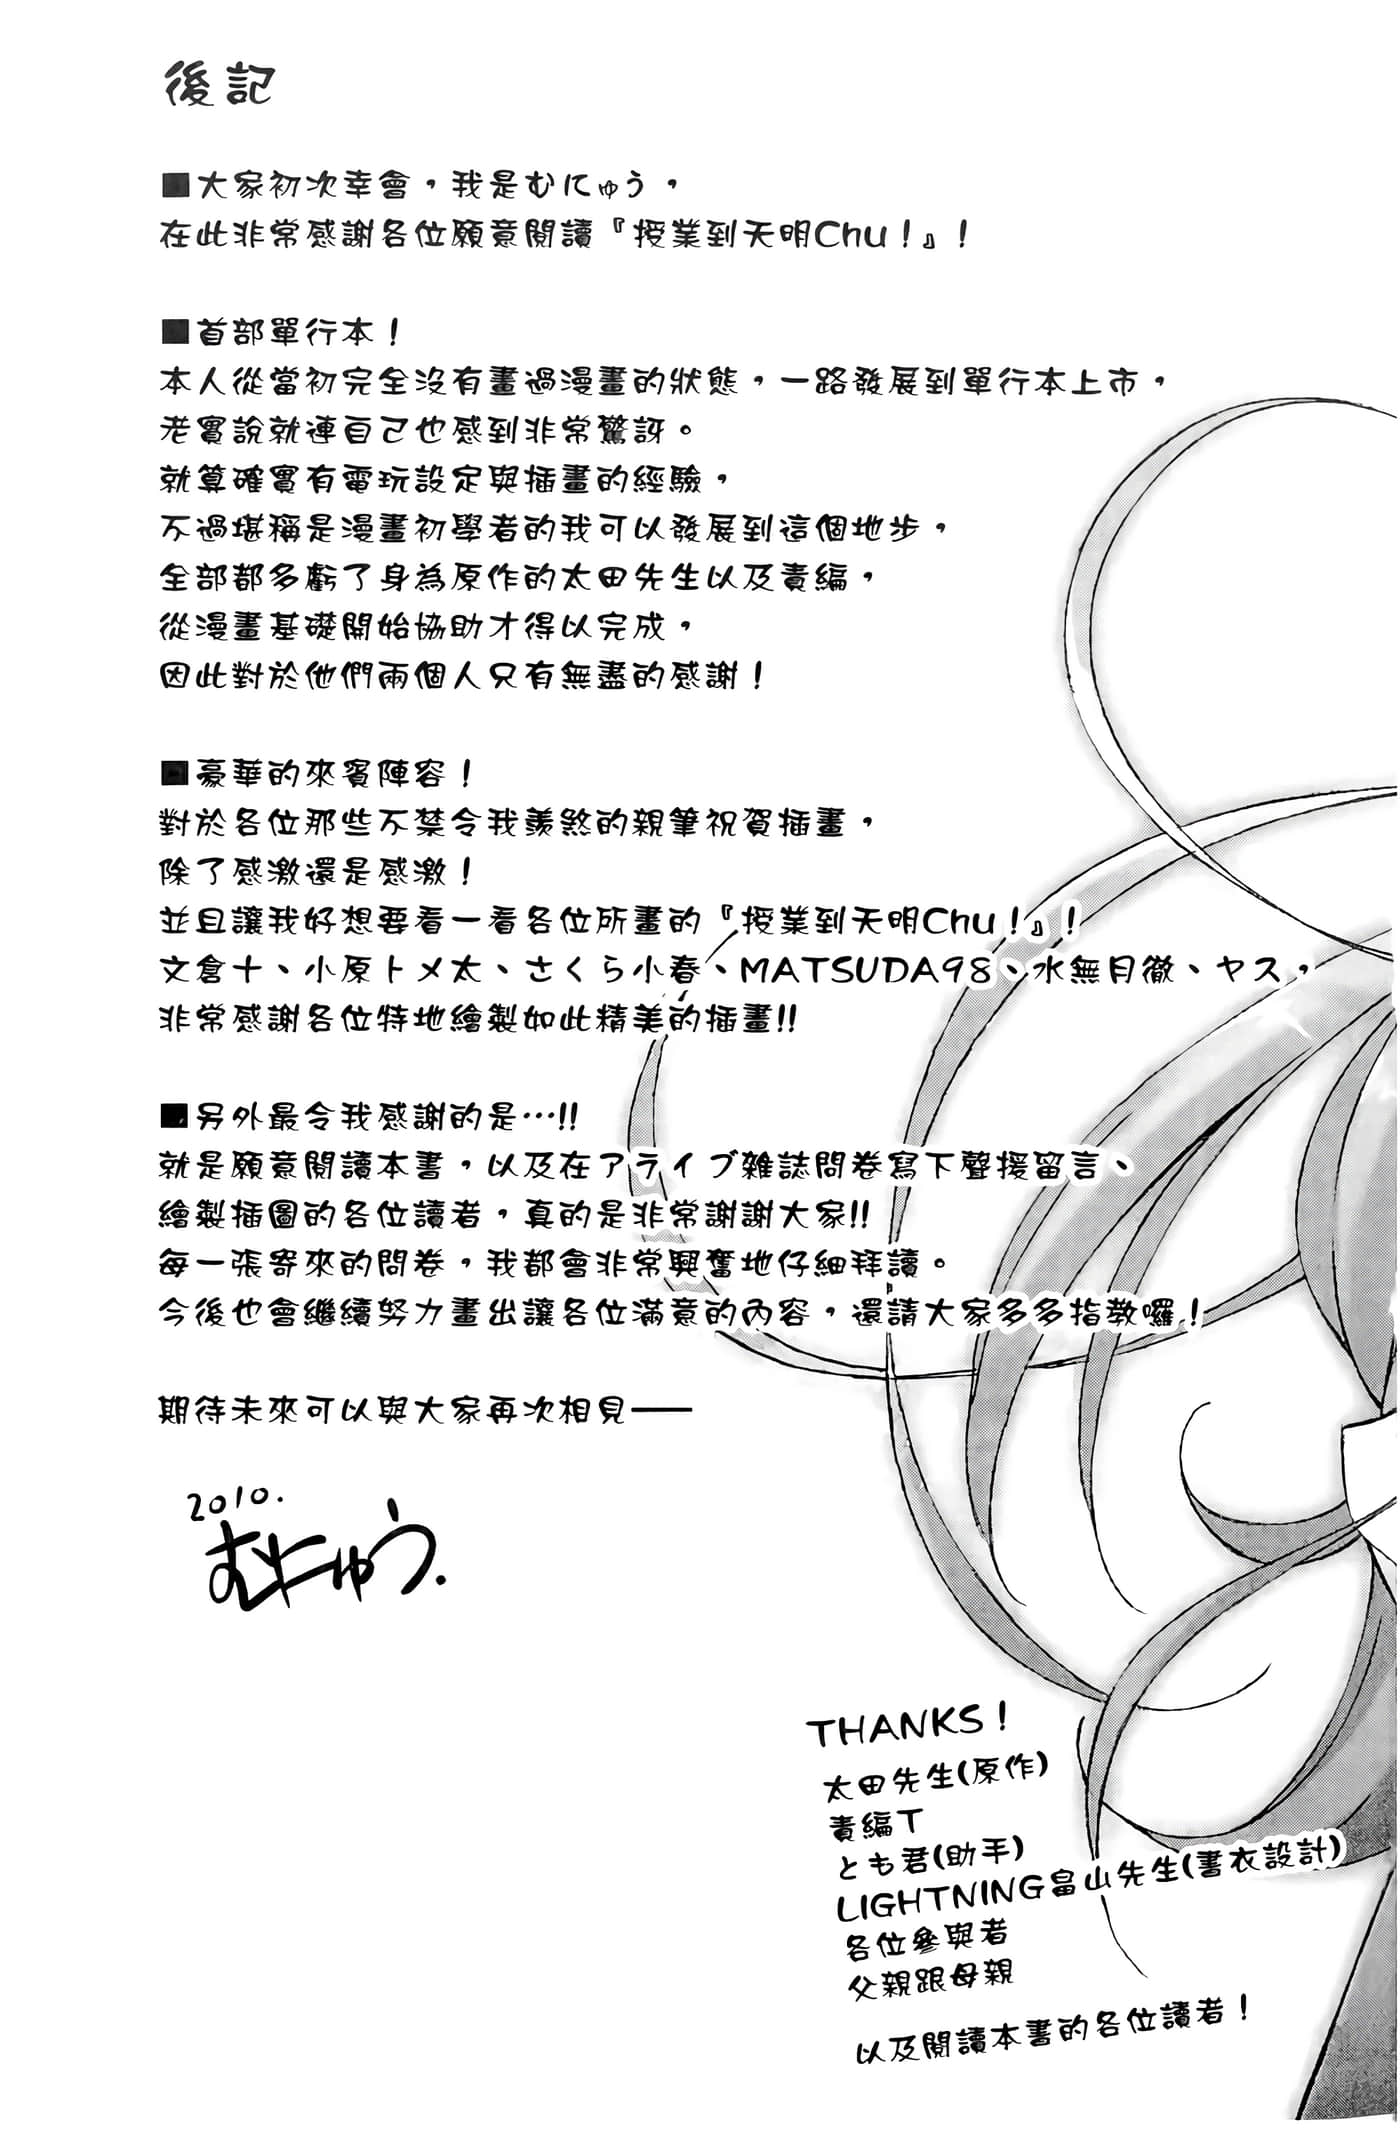 後記
■大家初次幸會，我是むにゅう，
在此非常感謝各位願意閱讀『授業到天明Chu！』！
■首部單行本！
本人從當初完全沒有畫過漫畫的狀態，一路發展到單行本上市，
老實說就連自己也感到非常驚訝。
就算確實有電玩設定與插畫的經驗，
不過堪稱是漫畫初學者的我可以發展到這個地步，
全部都多虧了身為原作的太田先生以及責編，
從漫畫基礎開始協助才得以完成，
因此對於他們兩個人只有無盡的感謝！
■豪華的來賓陣容！
對於各位那些不禁令我羨煞的親筆祝賀插畫，
除了感激還是感激！
並且讓我好想要看一看各位所畫的『授業到天明Chu！』！
文倉十、小原トメ太、さくら小春、MATSUDA98、水無月徹、ヤス，
非常感謝各位特地繪製如此精美的插畫!!
■另外最令我感謝的是…!!
就是願意閱讀本書，以及在アライブ雜誌問卷寫下聲援留言、
繪製插圖的各位讀者，真的是非常謝謝大家!!
每一張寄來的問卷，我都會非常興奮地仔細拜讀。
今後也會繼續努力畫出讓各位滿意的內容，還請大家多多指教囉！
期待未來可以與大家再次相見——
2010.
むにゅう.
THANKS！
太田先生(原作)
責編T
とも君(助手)
LIGHTNING畠山先生(書衣設計)
各位參與者
父親跟母親
以及閱讀本書的各位讀者！